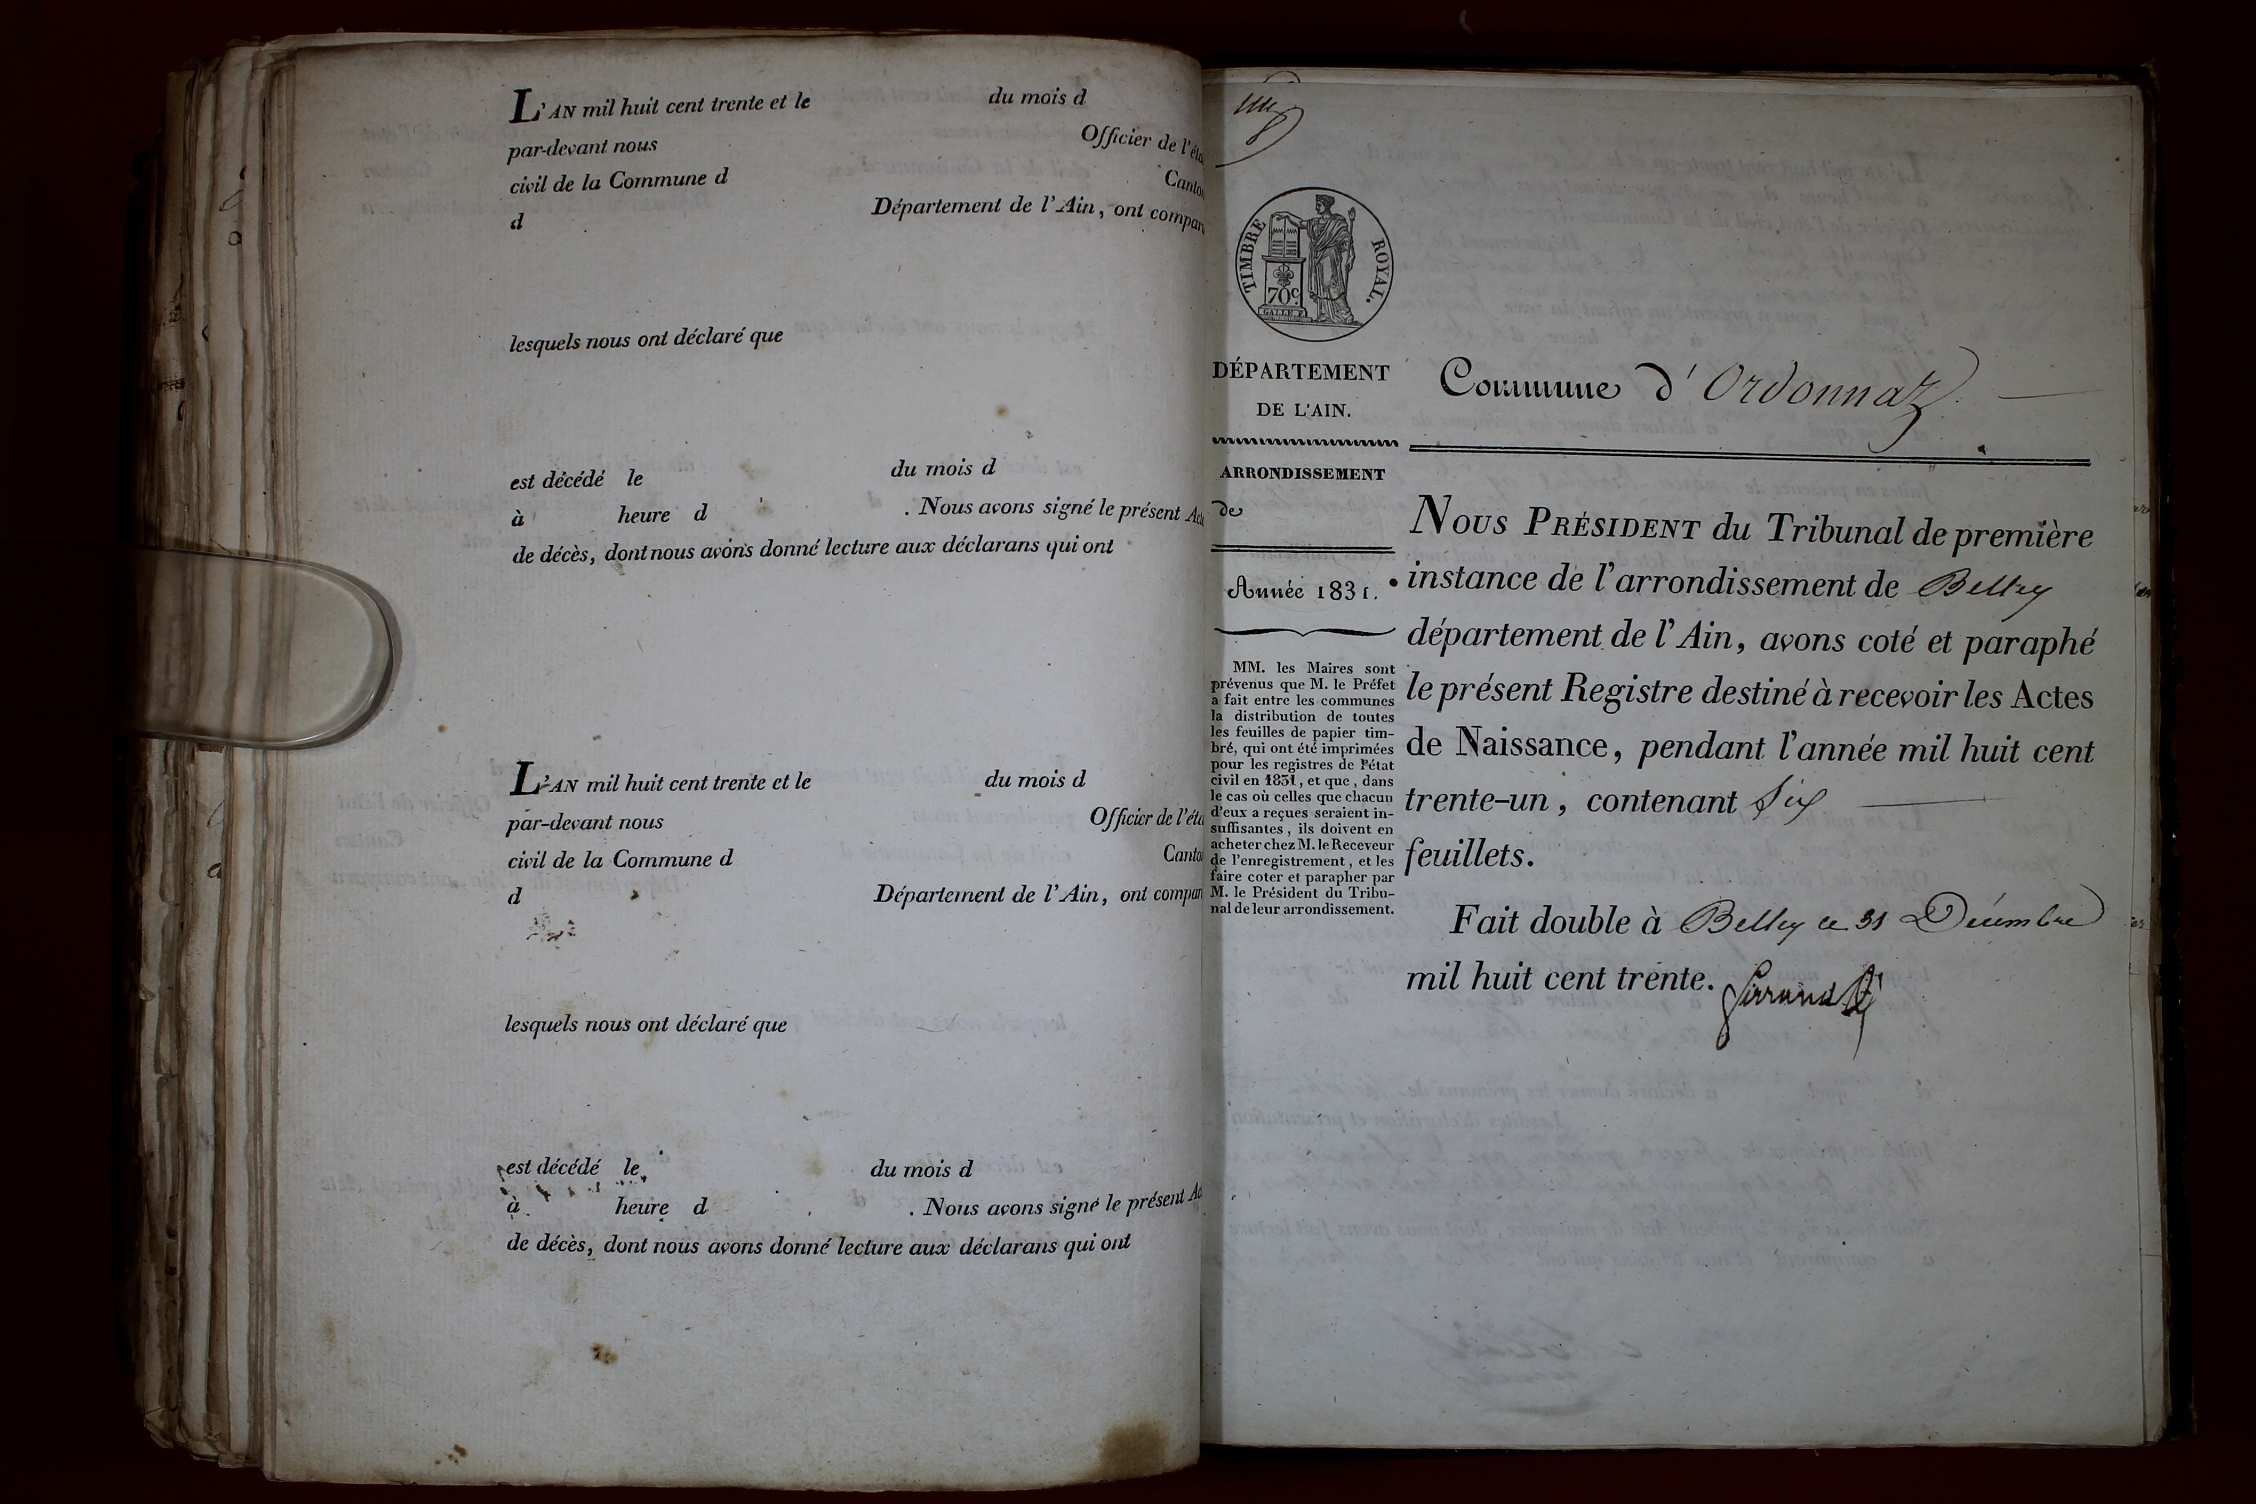 L'AN mil huit cent trente et le du mois d
par-devant nous Officier de l'éta
civil de la Commune d Canton
d Département de l'Ain, ont comparu
lesquels nous ont déclaré que
est décédé le du mois d
à heure d . Nous avons signé le présent Acte
de décès, dont nous avons donné lecture aux déclarans qui ont
L'AN mil huit cent trente et le du mois d
par-devant nous Officier de l'éta
civil de la Commune d Canto
d Département de l'Ain, ont compar
lesquels nous ont déclaré que
est décédé le du mois d
à heure d . Nous avons signé le présent Ac
de décès, dont nous avons donné lecture aux déclarans qui ont
TIMBRE ROYAL.
70c.
GALLE F.
DÉPARTEMENT
DE L'AIN.
ARRONDISSEMENT
de
Année 1831.
MM. les Maires sont
prévenus que M. le Préfet
a fait entre les communes
la distribution de toutes
les feuilles de papier tim-
bré, qui ont été imprimées
pour les registres de l'état
civil en 1831, et que, dans
le cas où celles que chacun
d'eux a reçues seraient in-
suffisantes, ils doivent en
acheter chez M. le Receveur
de l'enregistrement, et les
faire coter et parapher par
M. le Président du Tribu-
nal de leur arrondissement.
Commune d'Ordonnaz
NOUS PRÉSIDENT du Tribunal de première
instance de l'arrondissement de Belley
département de l'Ain, avons coté et paraphé
le présent Registre destiné à recevoir les Actes
de Naissance, pendant l'année mil huit cent
trente-un, contenant Six
feuillets.
Fait double à Belley ce 31 Décembre
mil huit cent trente.